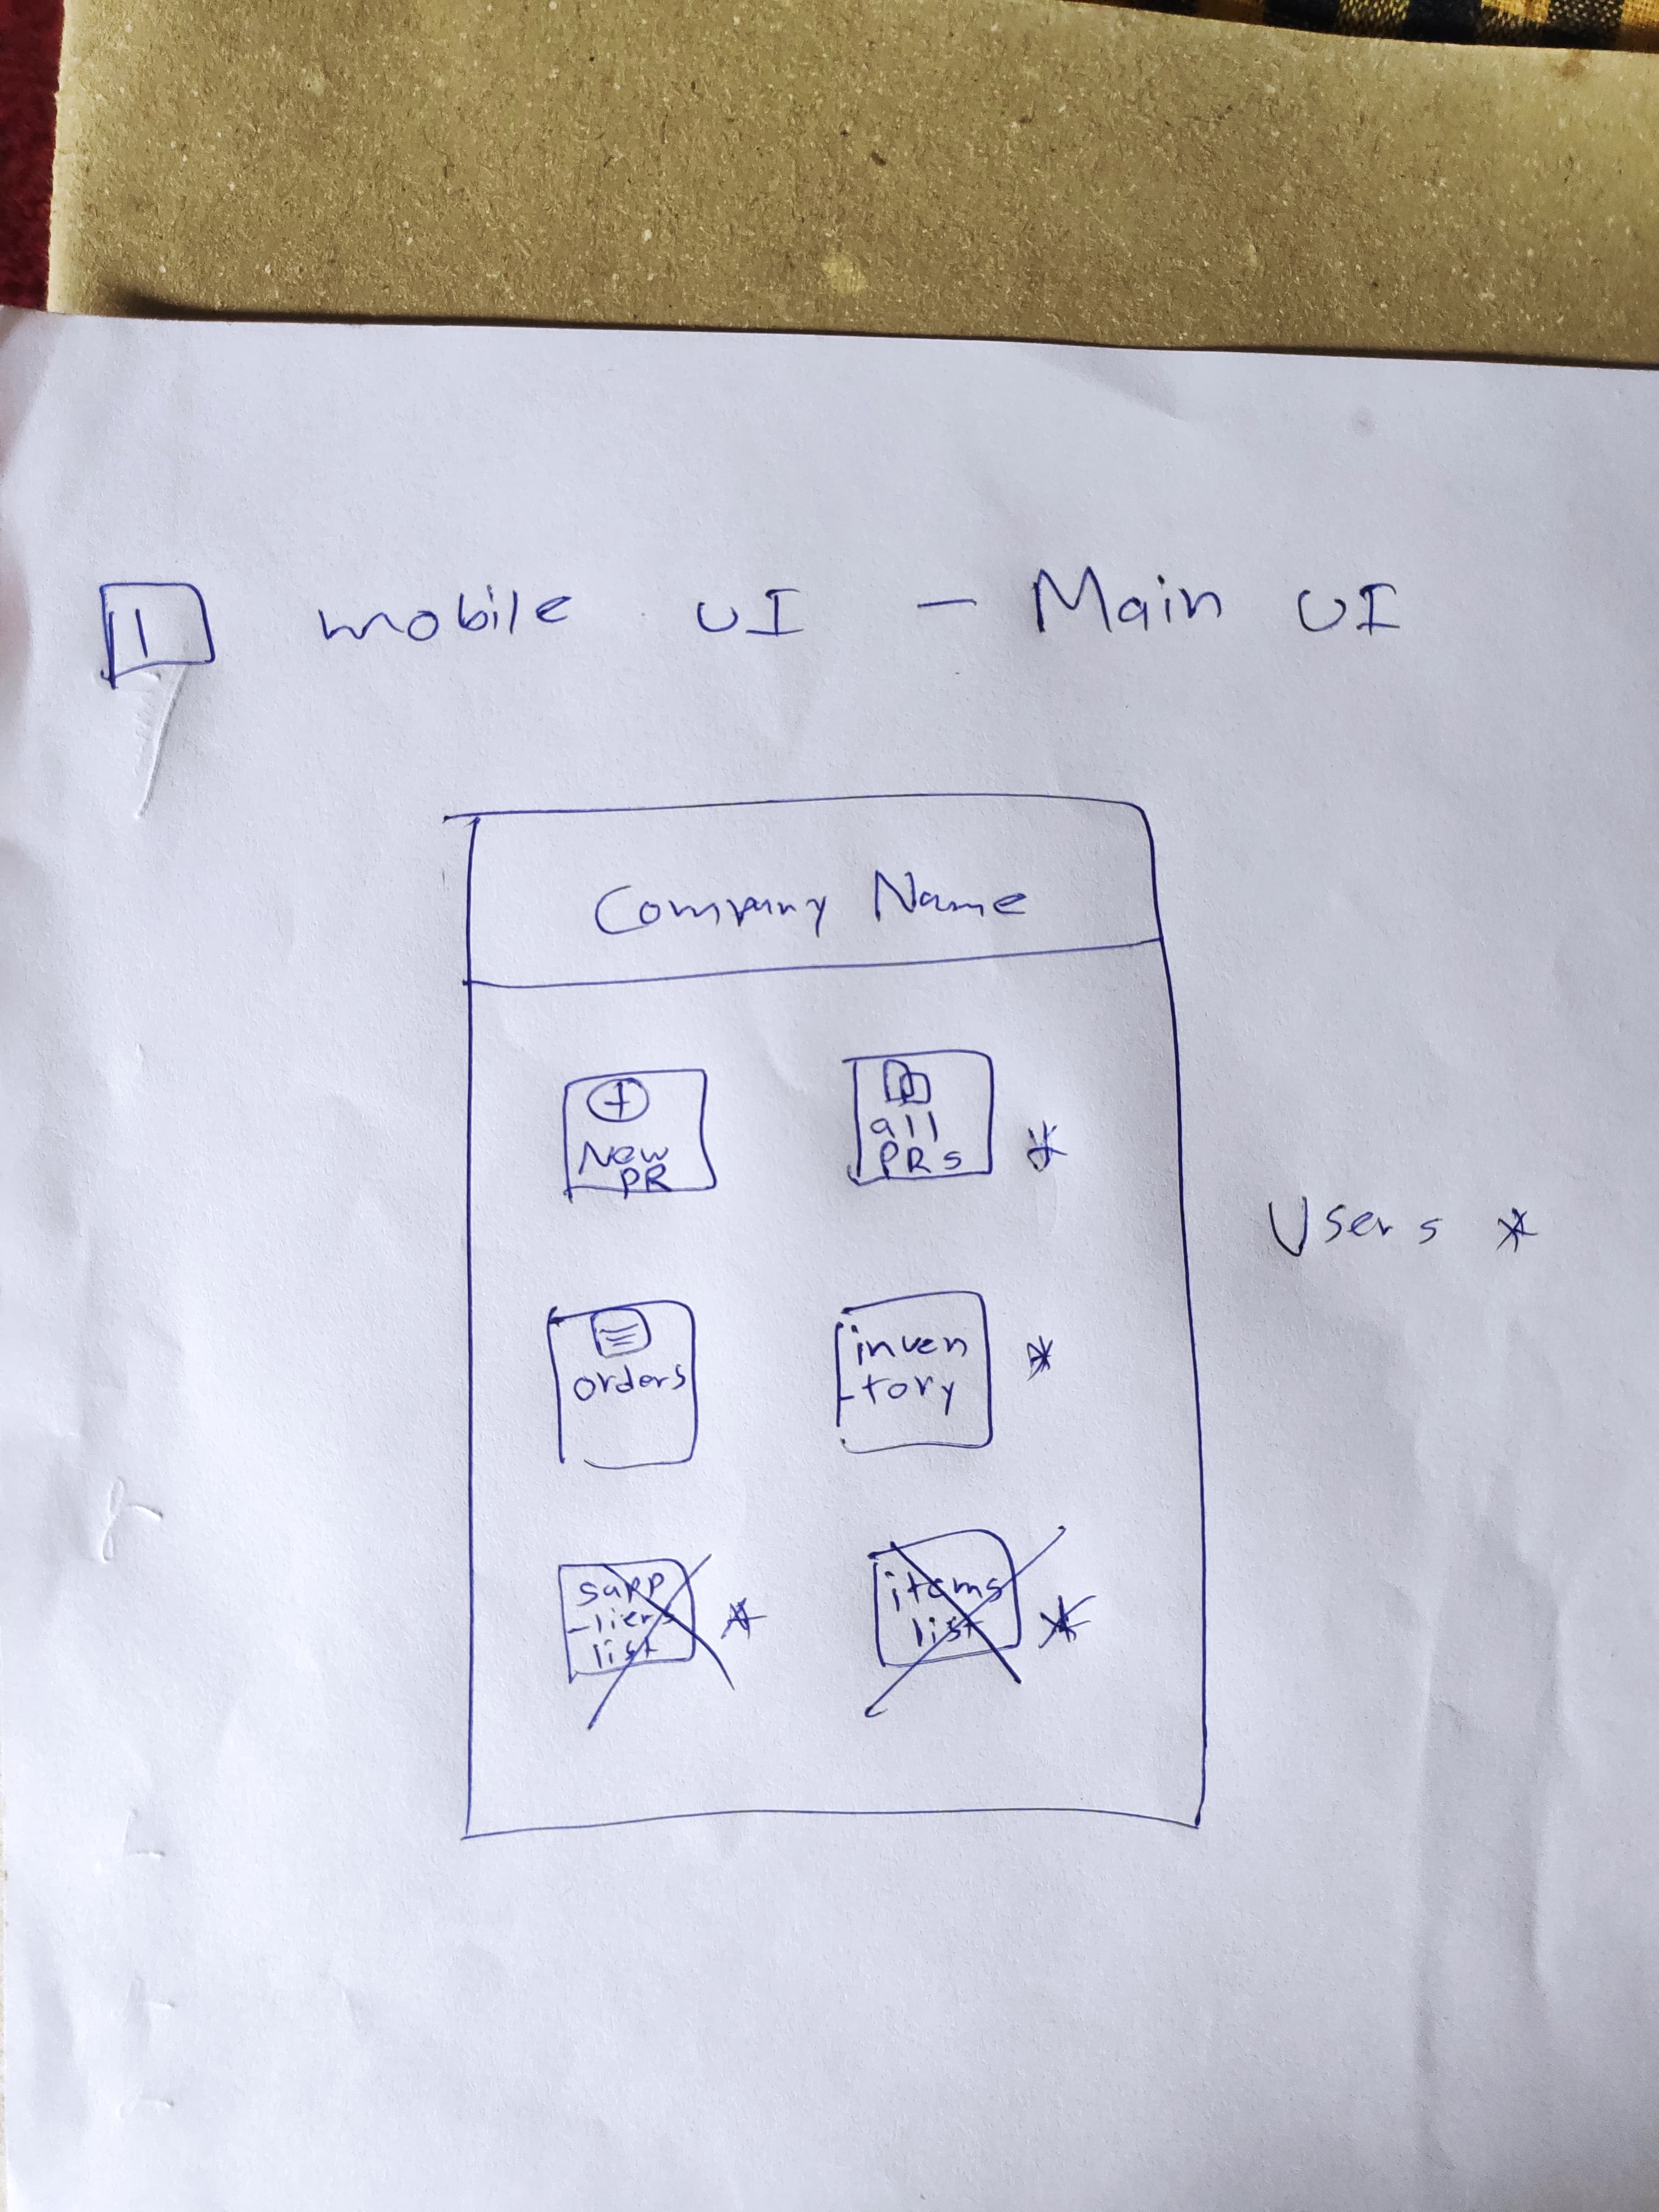 1 mobile UI - Main UI
Company Name
New
PR
all
PRs *
Users *
orders
inven
-tory *
supp
-liers
list *
items
list *